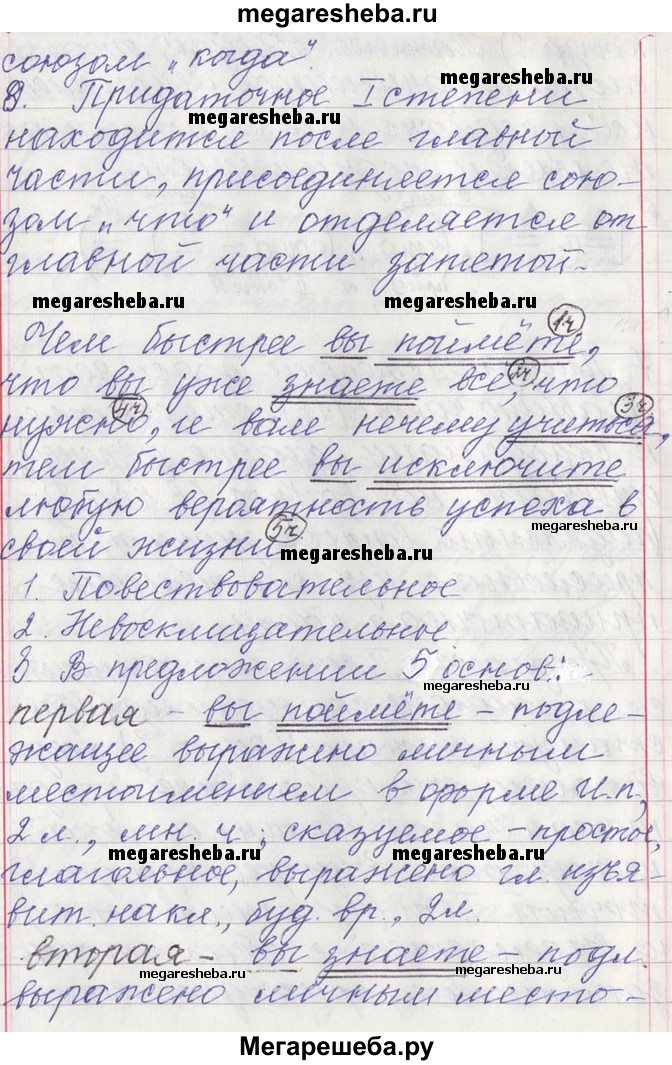 megaresheba.ru
союзом „когда"
megaresheba.ru
8. Придаточное I степени
megaresheba.ru
находится после главной
части, присоединяется сою-
зом „что" и отделяется от
главной части запятой.
megaresheba.ru megaresheba.ru
1ч
Чем быстрее вы поймёте,
2ч
что вы уже знаете все, что
4ч 3ч
нужно, и вам нечему учиться,
тем быстрее вы исключите
любую вероятность успеха в
megaresheba.ru
5ч
своей жизни
megaresheba.ru
1. Повествовательное
2. Невосклицательное
3 В предложении 5 основ:
megaresheba.ru
первая – вы поймёте – подле-
жащее выражено личным
местоимением в форме И.п.,
2 л., мн. ч.; сказуемое – простое,
megaresheba.ru megaresheba.ru
глагольное, выражено гл. изъя-
вит. накл., буд. вр., 2л.
вторая – вы знаете – подл.
megaresheba.ru megaresheba.ru
выражено личным место-
Мегарешеба.ру